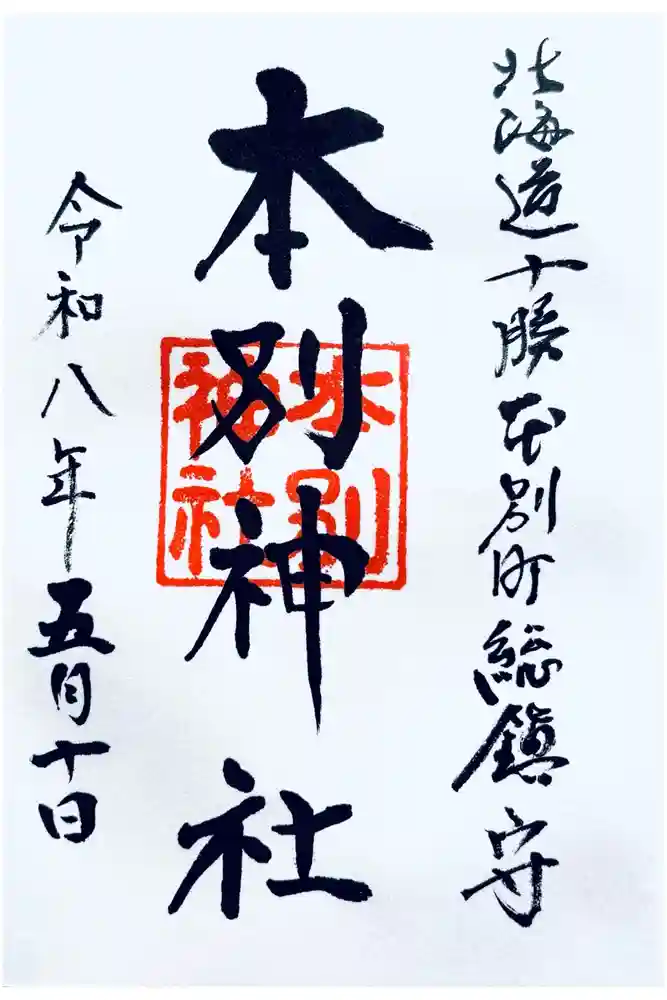 北海道十勝本別町総鎮守
本別神社
本別
神社
令和八年五月十日